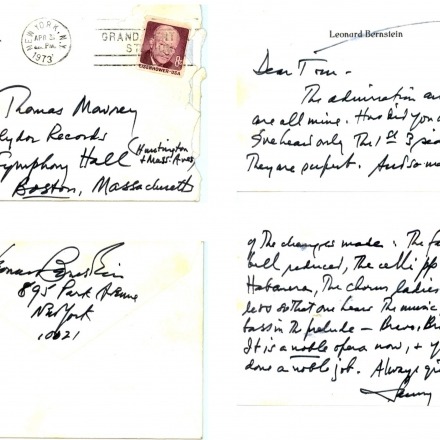 NEW YORK, N.Y.
APR 2
PM
1973
GRAND
ST
8¢
EISENHOWER·USA
Thomas Mowrey
Records
Symphony Hall (Huntington
+ Mass. Aves)
Boston, Massachusetts
Leonard Bernstein
Dear Tom –
The admiration an
are all mine. How did you
I've heard only the 1st 3
They are perfect. And so m
Leonard Bernstein
895 Park Avenue
New York
10021
of the changes made: The
bell reduced, the celli pp
Habanera, The chorus ladies
less so that one hears the music,
bass in the prelude — Bravo, Br
It is a noble opera now, + y
done a noble job. Always
Lenny